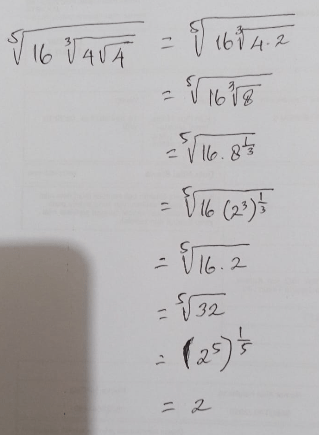 ⁵√(16 ³√(4√4)) = ⁵√(16 ³√(4·2))
= ⁵√(16 ³√8)
= ⁵√(16 · 8^(1/3))
= ⁵√(16 (2³)^(1/3))
= ⁵√(16 · 2)
= ⁵√32
= (2⁵)^(1/5)
= 2